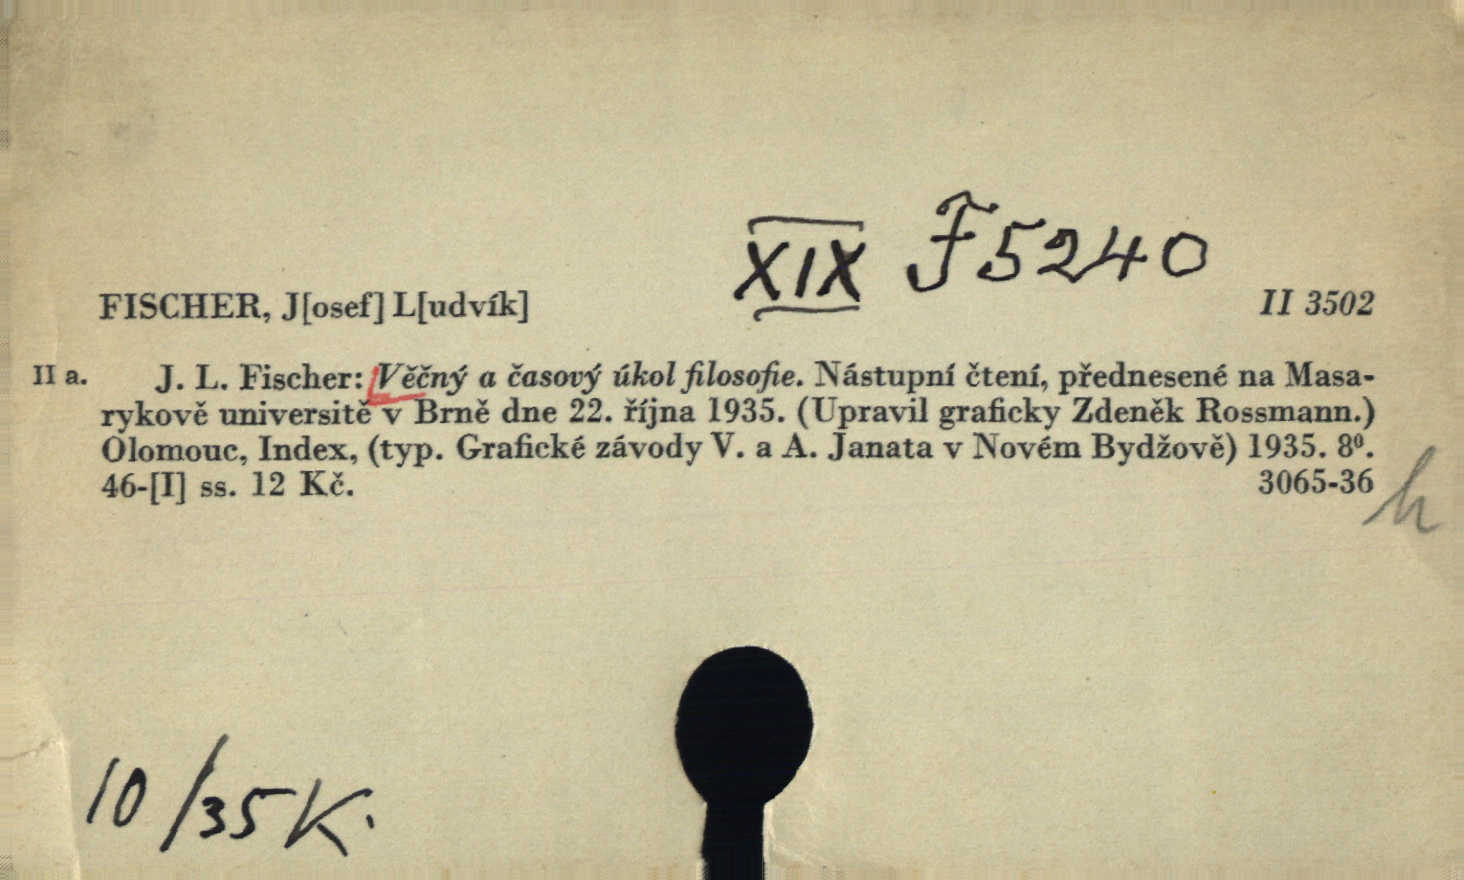 XIX F5240
FISCHER, J[osef] L[udvík]
II 3502
II a. J. L. Fischer: Věčný a časový úkol filosofie. Nástupní čtení, přednesené na Masa-
rykově universitě v Brně dne 22. října 1935. (Upravil graficky Zdeněk Rossmann.)
Olomouc, Index, (typ. Grafické závody V. a A. Janata v Novém Bydžově) 1935. 8⁰.
46-[I] ss. 12 Kč. 3065-36
h
10/35 K.